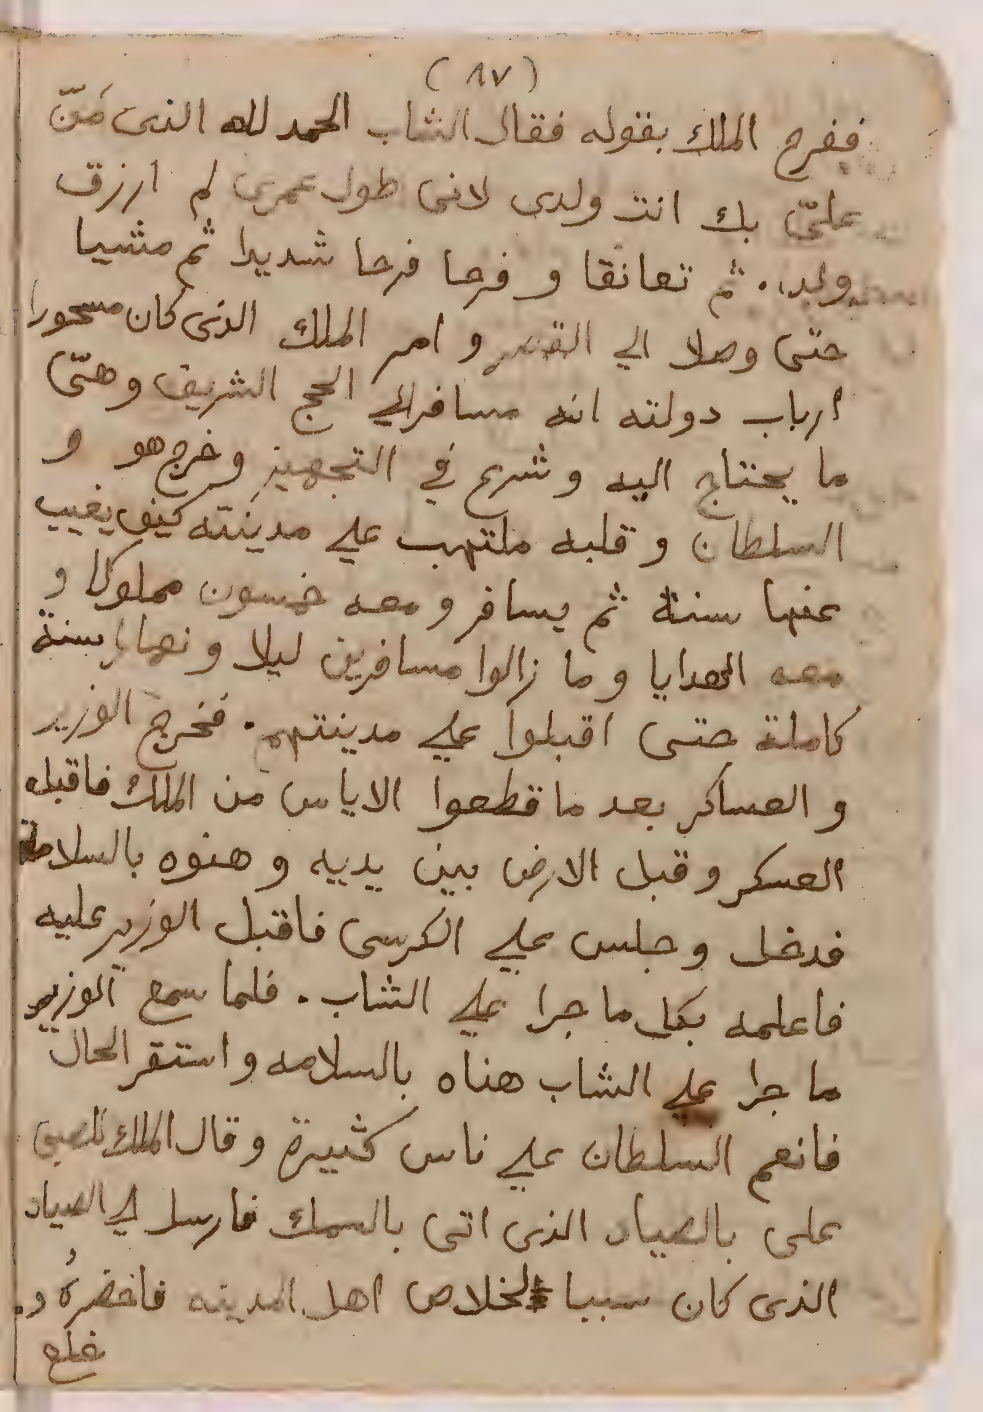 (٨٧)
ففرح الملك بقوله فقال الشاب الحمد لله الذى مَنّ
علىّ بك انت ولدى لانى طول عمرى لم ارزق
ولد. ثم تعانقا و فرحا فرحا شديدا ثم مشيا
حتى وصلا الي القصر و امر الملك الذى كان مسحورا
ارباب دولته انه مسافر الي الحج الشريف وهتّى
ما يحتاج اليه و شرع في التجهيز و خرج هو و
السلطان و قلبه ملتهب علي مدينته كيف يغيب
عنها سنة ثم يسافر و معه خمسون مملوكا و
معه الهدايا و ما زالوا مسافرين ليلا و نهارا سنة
كاملة حتى اقبلوا علي مدينتهم. فخرج الوزير
و العساكر بعد ما قطعوا الاياس من الملك فاقبله
العسكر و قبل الارض بين يديه و هنوه بالسلامة
فدخل و جلس علي الكرسى فاقبل الوزير عليه
فاعلمه بكل ما جرا علي الشاب. فلما سمع الوزير
ما جرا علي الشاب هناه بالسلامه و استقر الحال
فانعم السلطان علي ناس كثيرة و قال الملك للصبى
على بالصياد الذى اتى بالسمك فارسل الي الصياد
الذى كان سببا لخلاص اهل المدينه فاخضرهُ و
خلع